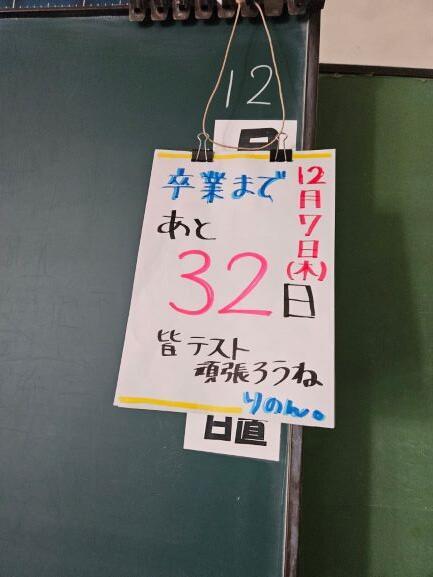 12
月
12月7日(木)
卒業まで
あと
32日
皆テスト
頑張ろうね
りのん。
日直